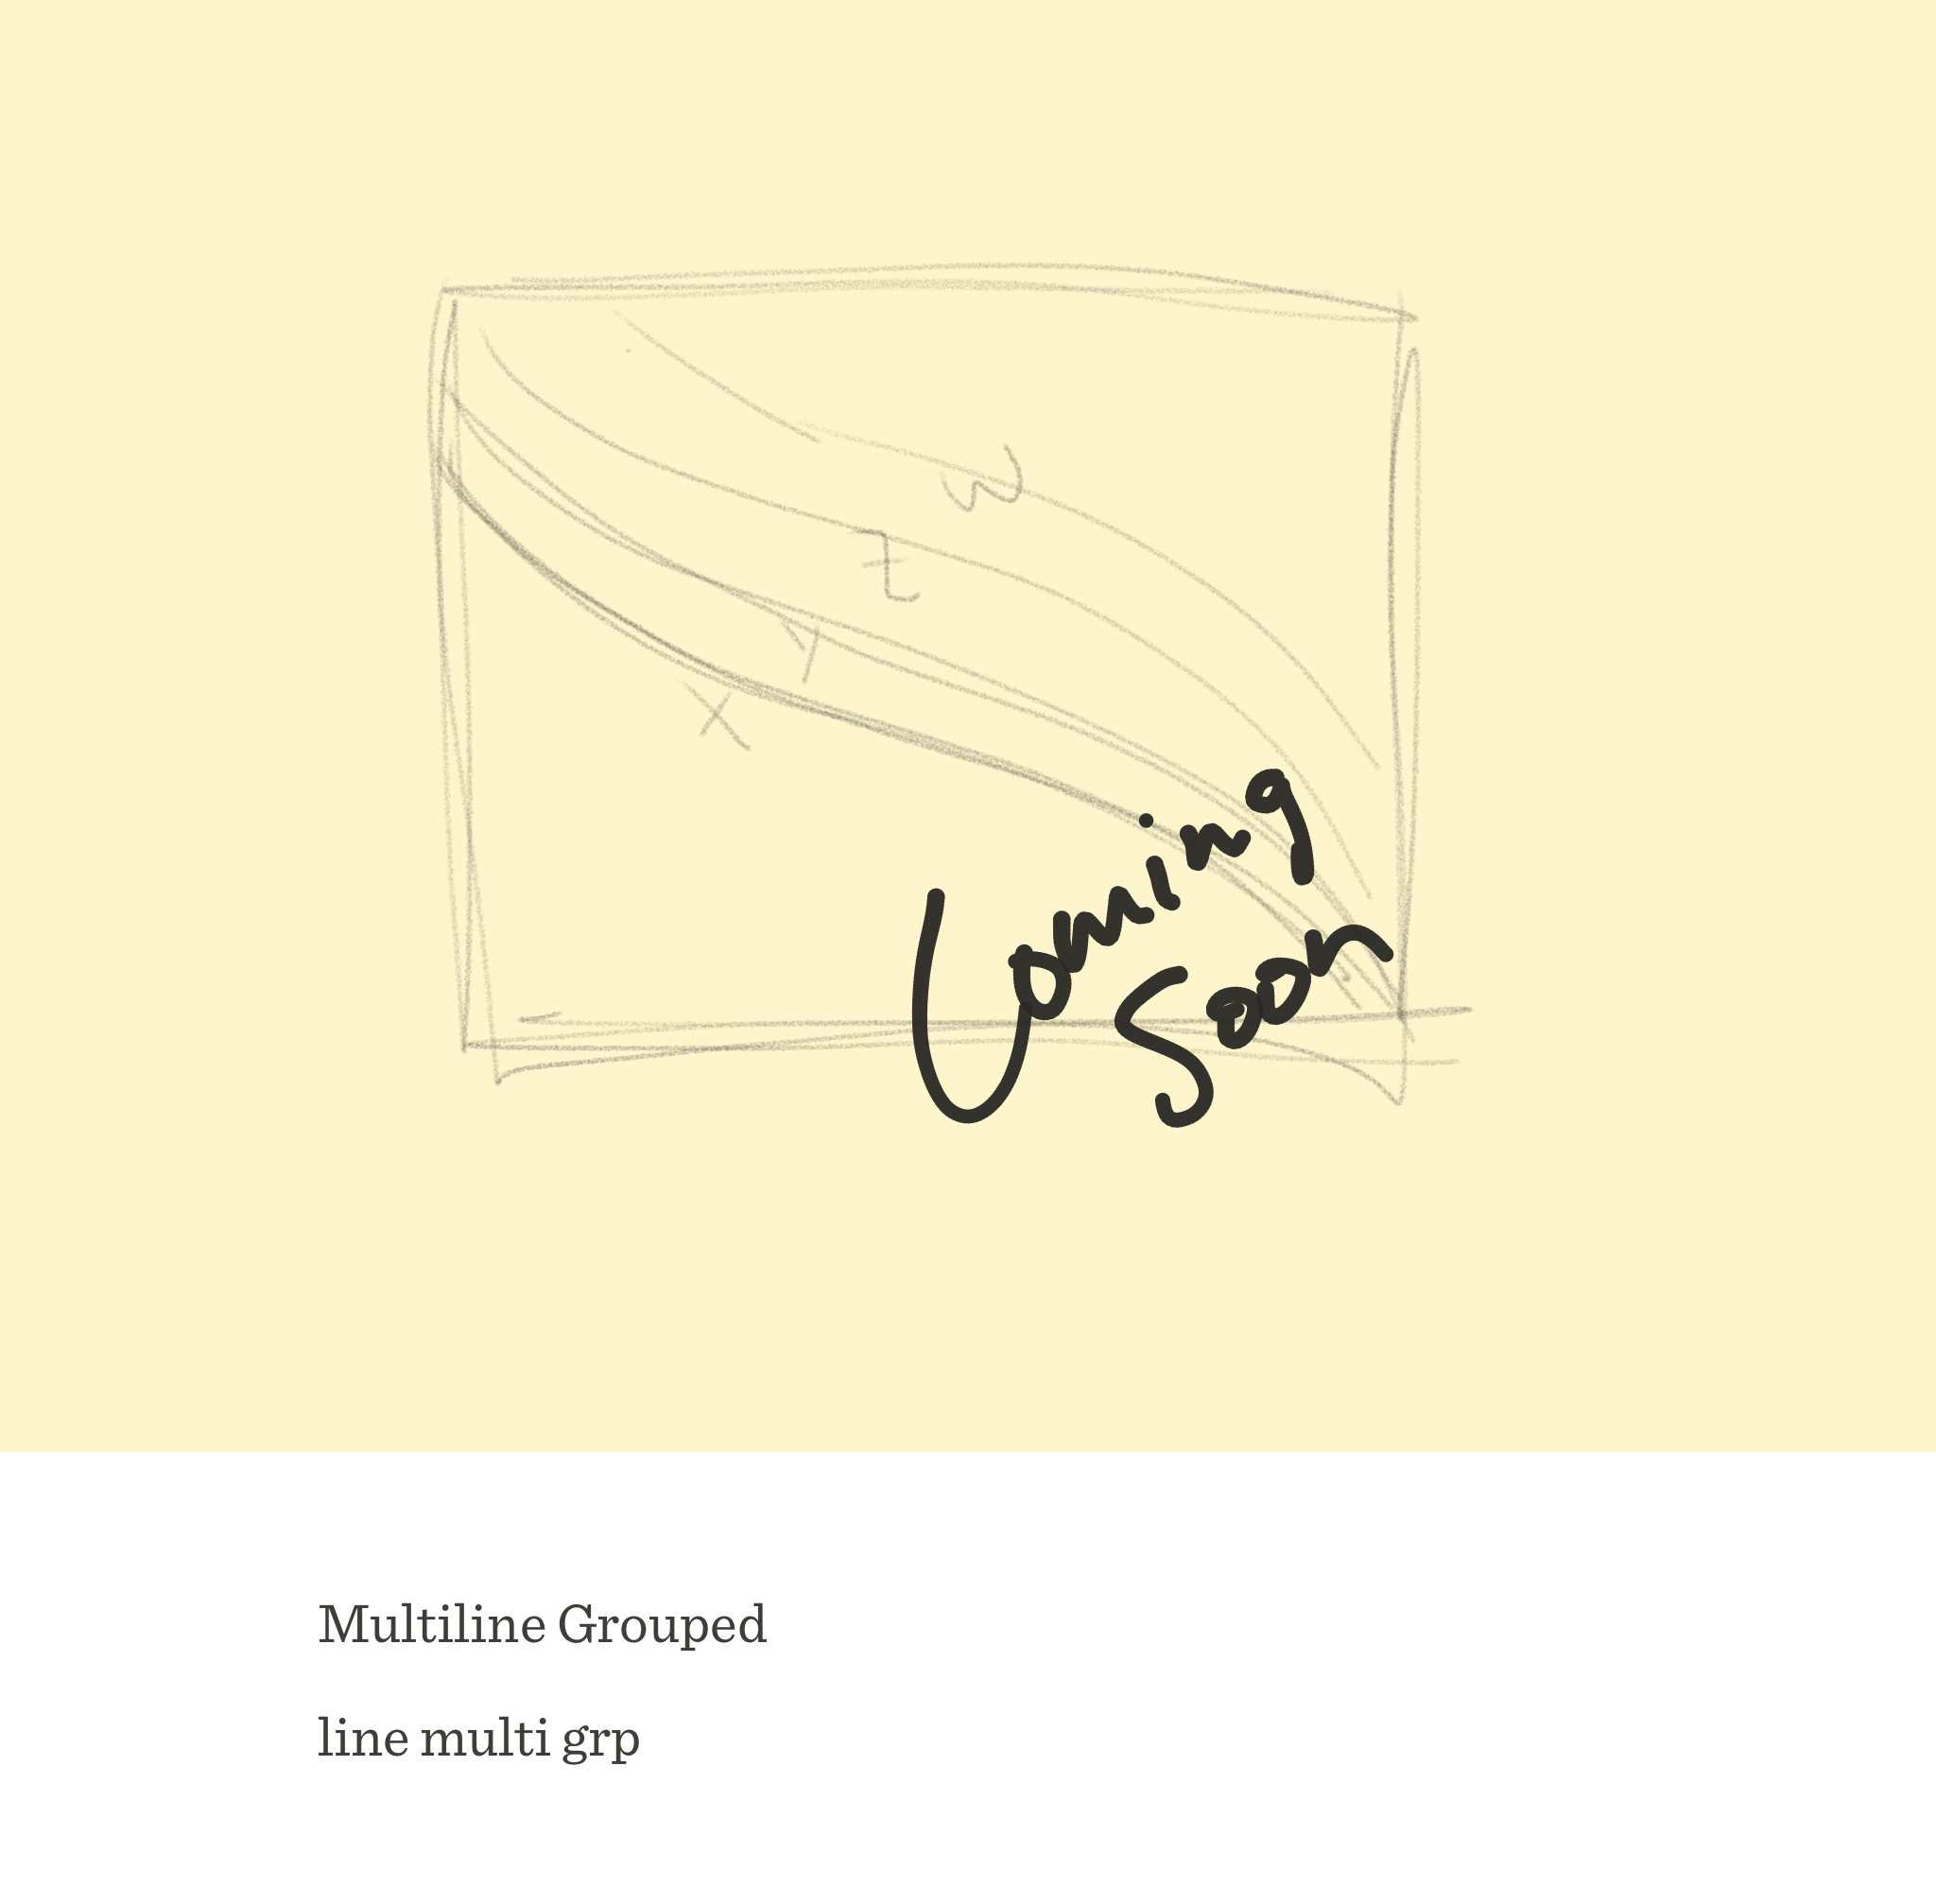 W
Z
Y
X
Coming
Soon
Multiline Grouped
line multi grp